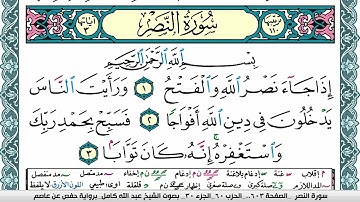 سُورَةُ النَّصْرِ
بِسْمِ ٱللَّهِ ٱلرَّحْمَٰنِ ٱلرَّحِيمِ
إِذَا جَآءَ نَصْرُ ٱللَّهِ وَٱلْفَتْحُ ١ وَرَأَيْتَ ٱلنَّاسَ
يَدْخُلُونَ فِي دِينِ ٱللَّهِ أَفْوَاجًا ٢ فَسَبِّحْ بِحَمْدِ رَبِّكَ
وَٱسْتَغْفِرْهُ إِنَّهُۥ كَانَ تَوَّابًۢا ٣
سورة النصر _ الصفحة ٦٠٣ _ الحزب ٦٠ _ الجزء ٣٠ _ بصوت الشيخ عبد الله كامل _ برواية حفص عن عاصم